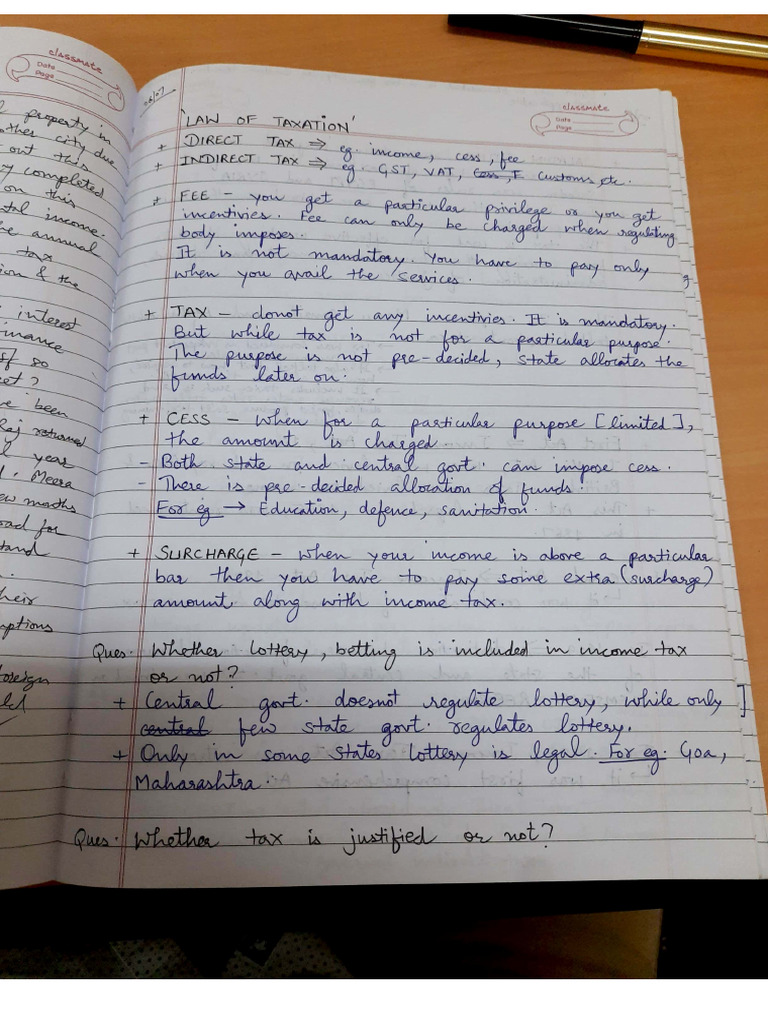 classmate
Date
Page
property in
other city due
out this
completed
on this
income.
annual
tax
& the
interest
so
been
returned
year
Meera
for
foreign
06/07
classmate
Date
Page
'LAW OF TAXATION'
+ DIRECT TAX ⇒ eg. income, cess, fee
+ INDIRECT TAX ⇒ eg. GST, VAT, Cess, E Customs, etc.
+ FEE - you get a particular privilege or you get
incentivies. Fee can only be charged when regulating
body imposes.
It is not mandatory. You have to pay only
when you avail the services.
+ TAX - donot get any incentivies. It is mandatory.
But while tax is not for a particular purpose.
The purpose is not pre-decided, state allocates the
funds later on.
+ CESS - When for a particular purpose [limited],
the amount is charged.
- Both state and central govt. can impose cess.
- There is pre-decided allocation of funds.
For eg → Education, defence, sanitation.
+ SURCHARGE - when your income is above a particular
bar then you have to pay some extra (surcharge)
amount along with income tax.
Ques. Whether lottery, betting is included in income tax
or not?
+ Central govt. doesnot regulate lottery, while only ]
central few state govt. regulates lottery.
+ Only in some states lottery is legal. For eg. Goa,
Maharashtra.
Ques. Whether tax is justified or not?